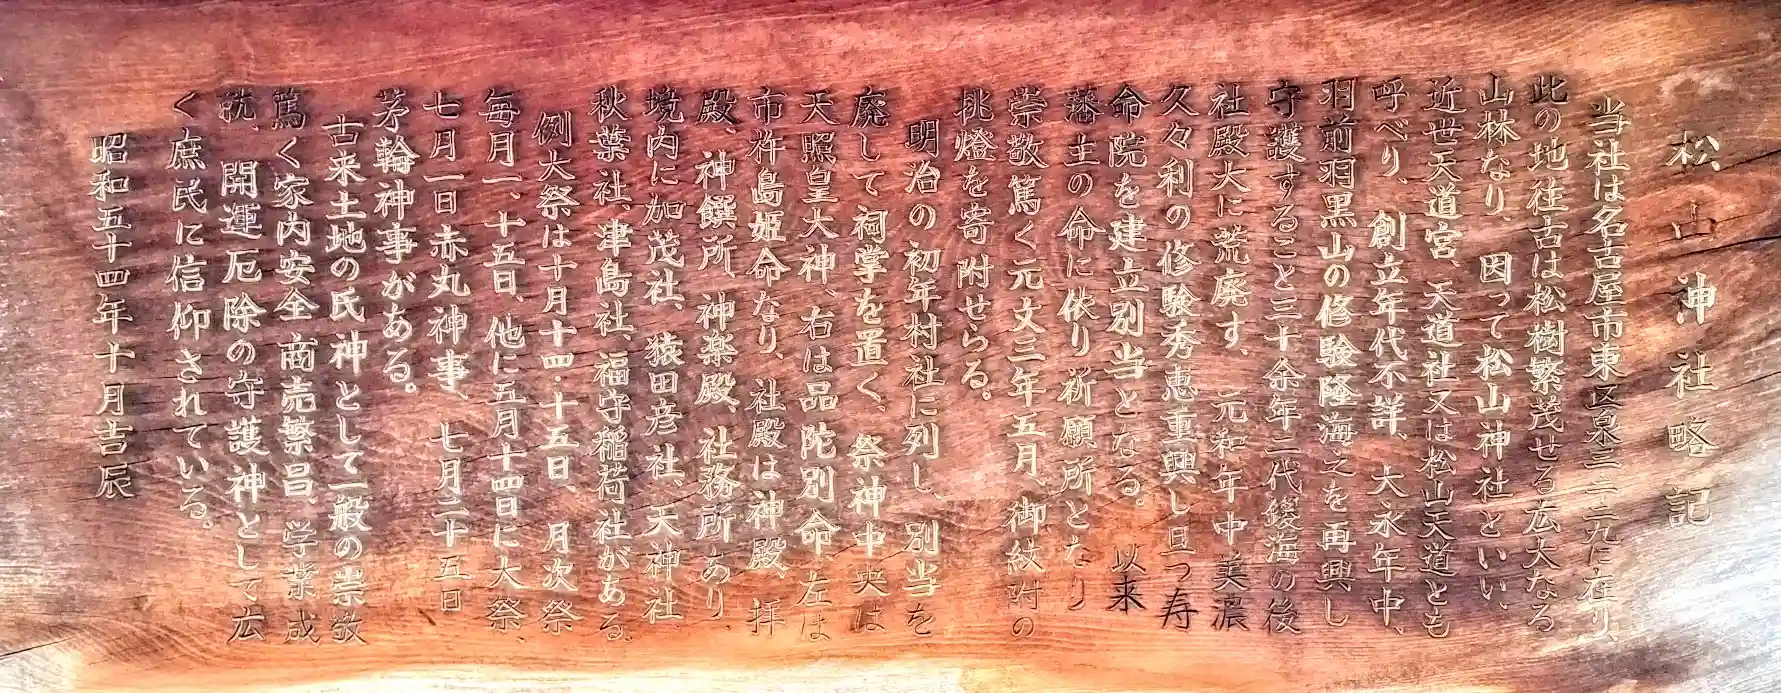 松山神社略記
当社は名古屋市東区泉三ー二九に在り、
此の地往古は松樹繁茂せる広大なる
山林なり、因って松山神社といい、
近世天道宮、天道社又は松山天道とも
呼べり、創立年代不詳、大永年中、
羽前羽黒山の修験隆海之を再興し
守護すること三十余年二代鑁海の後
社殿大に荒廃す、元和年中美濃
久々利の修験秀恵重興し且つ寿
命院を建立別当となる。以来
藩主の命に依り祈願所となり
崇敬篤く元文三年五月、御紋附の
挑燈を寄附せらる。
明治の初年村社に列し、別当を
廃して祠掌を置く、祭神中央は
天照皇大神、右は品陀別命、左は
市杵島姫命なり、社殿は神殿、拝
殿、神饌所、神楽殿、社務所あり、
境内に加茂社、猿田彦社、天神社
秋葉社、津島社、福守稲荷社がある。
例大祭は十月十四・十五日、月次祭
毎月一、十五日、他に五月十四日に大祭、
七月一日赤丸神事、七月二十五日
茅輪神事がある。
古来土地の氏神として一般の崇敬
篤く家内安全、商売繁昌、学業成
就、開運厄除の守護神として広
く庶民に信仰されている。
昭和五十四年十月吉辰